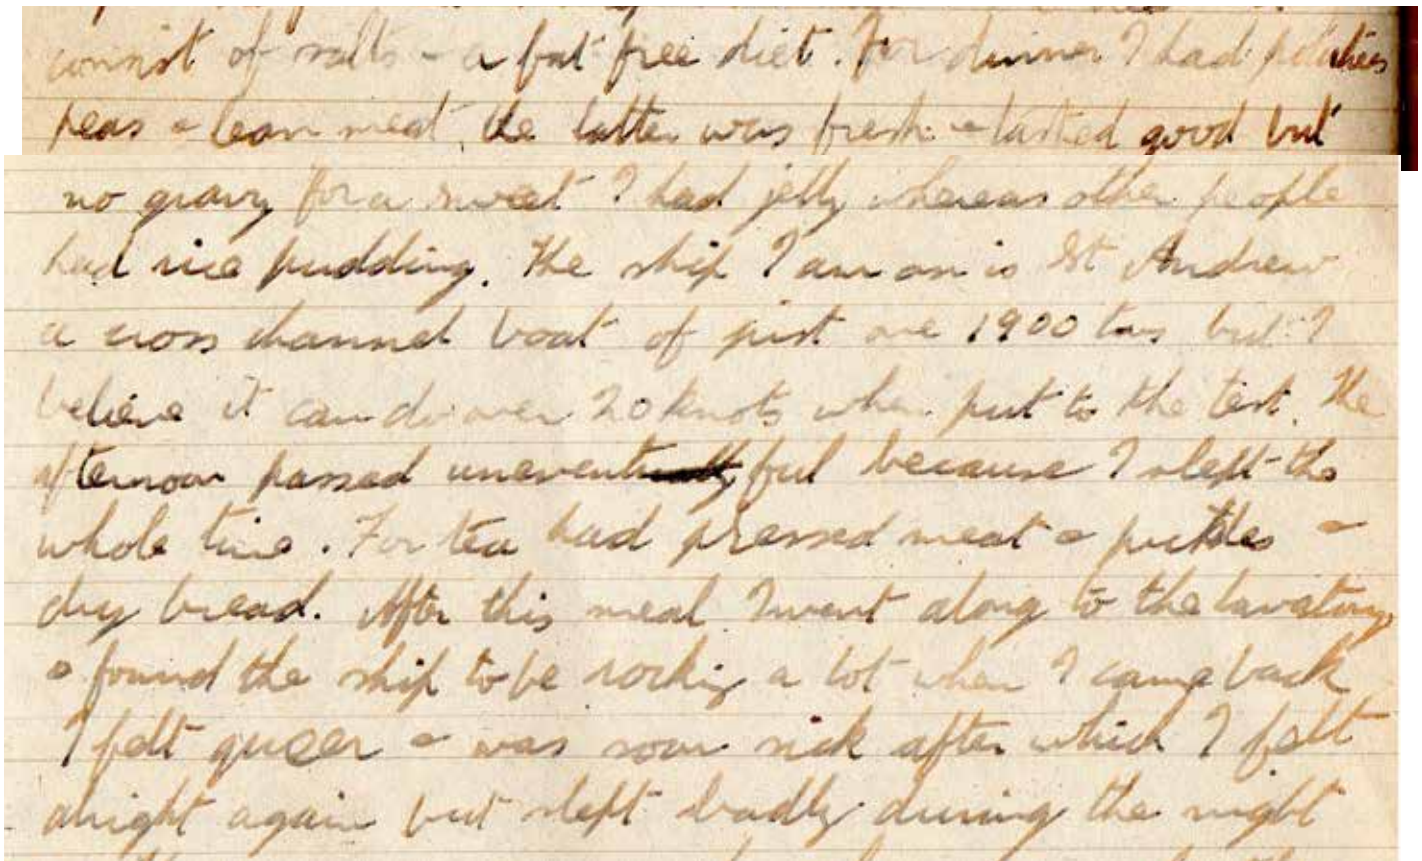 consist of salts & a fat free diet. For dinner I had potatoes
peas & lean meat, the latter was fresh & tasted good but
no gravy for a sweet I had jelly whereas other people
had rice pudding. The ship I am on is St Andrew
a cross channel boat of just ove 1900 tons but I
believe it can do over 20 knots when put to the test. The
afternoon passed uneventful because I slept the
whole time. For tea had pressed meat & pickles &
dry bread. After this meal I went along to the lavatory
& found the ship to be rocking a lot when I came back
I felt queer & was soon sick after which I felt
alright again but slept badly during the night